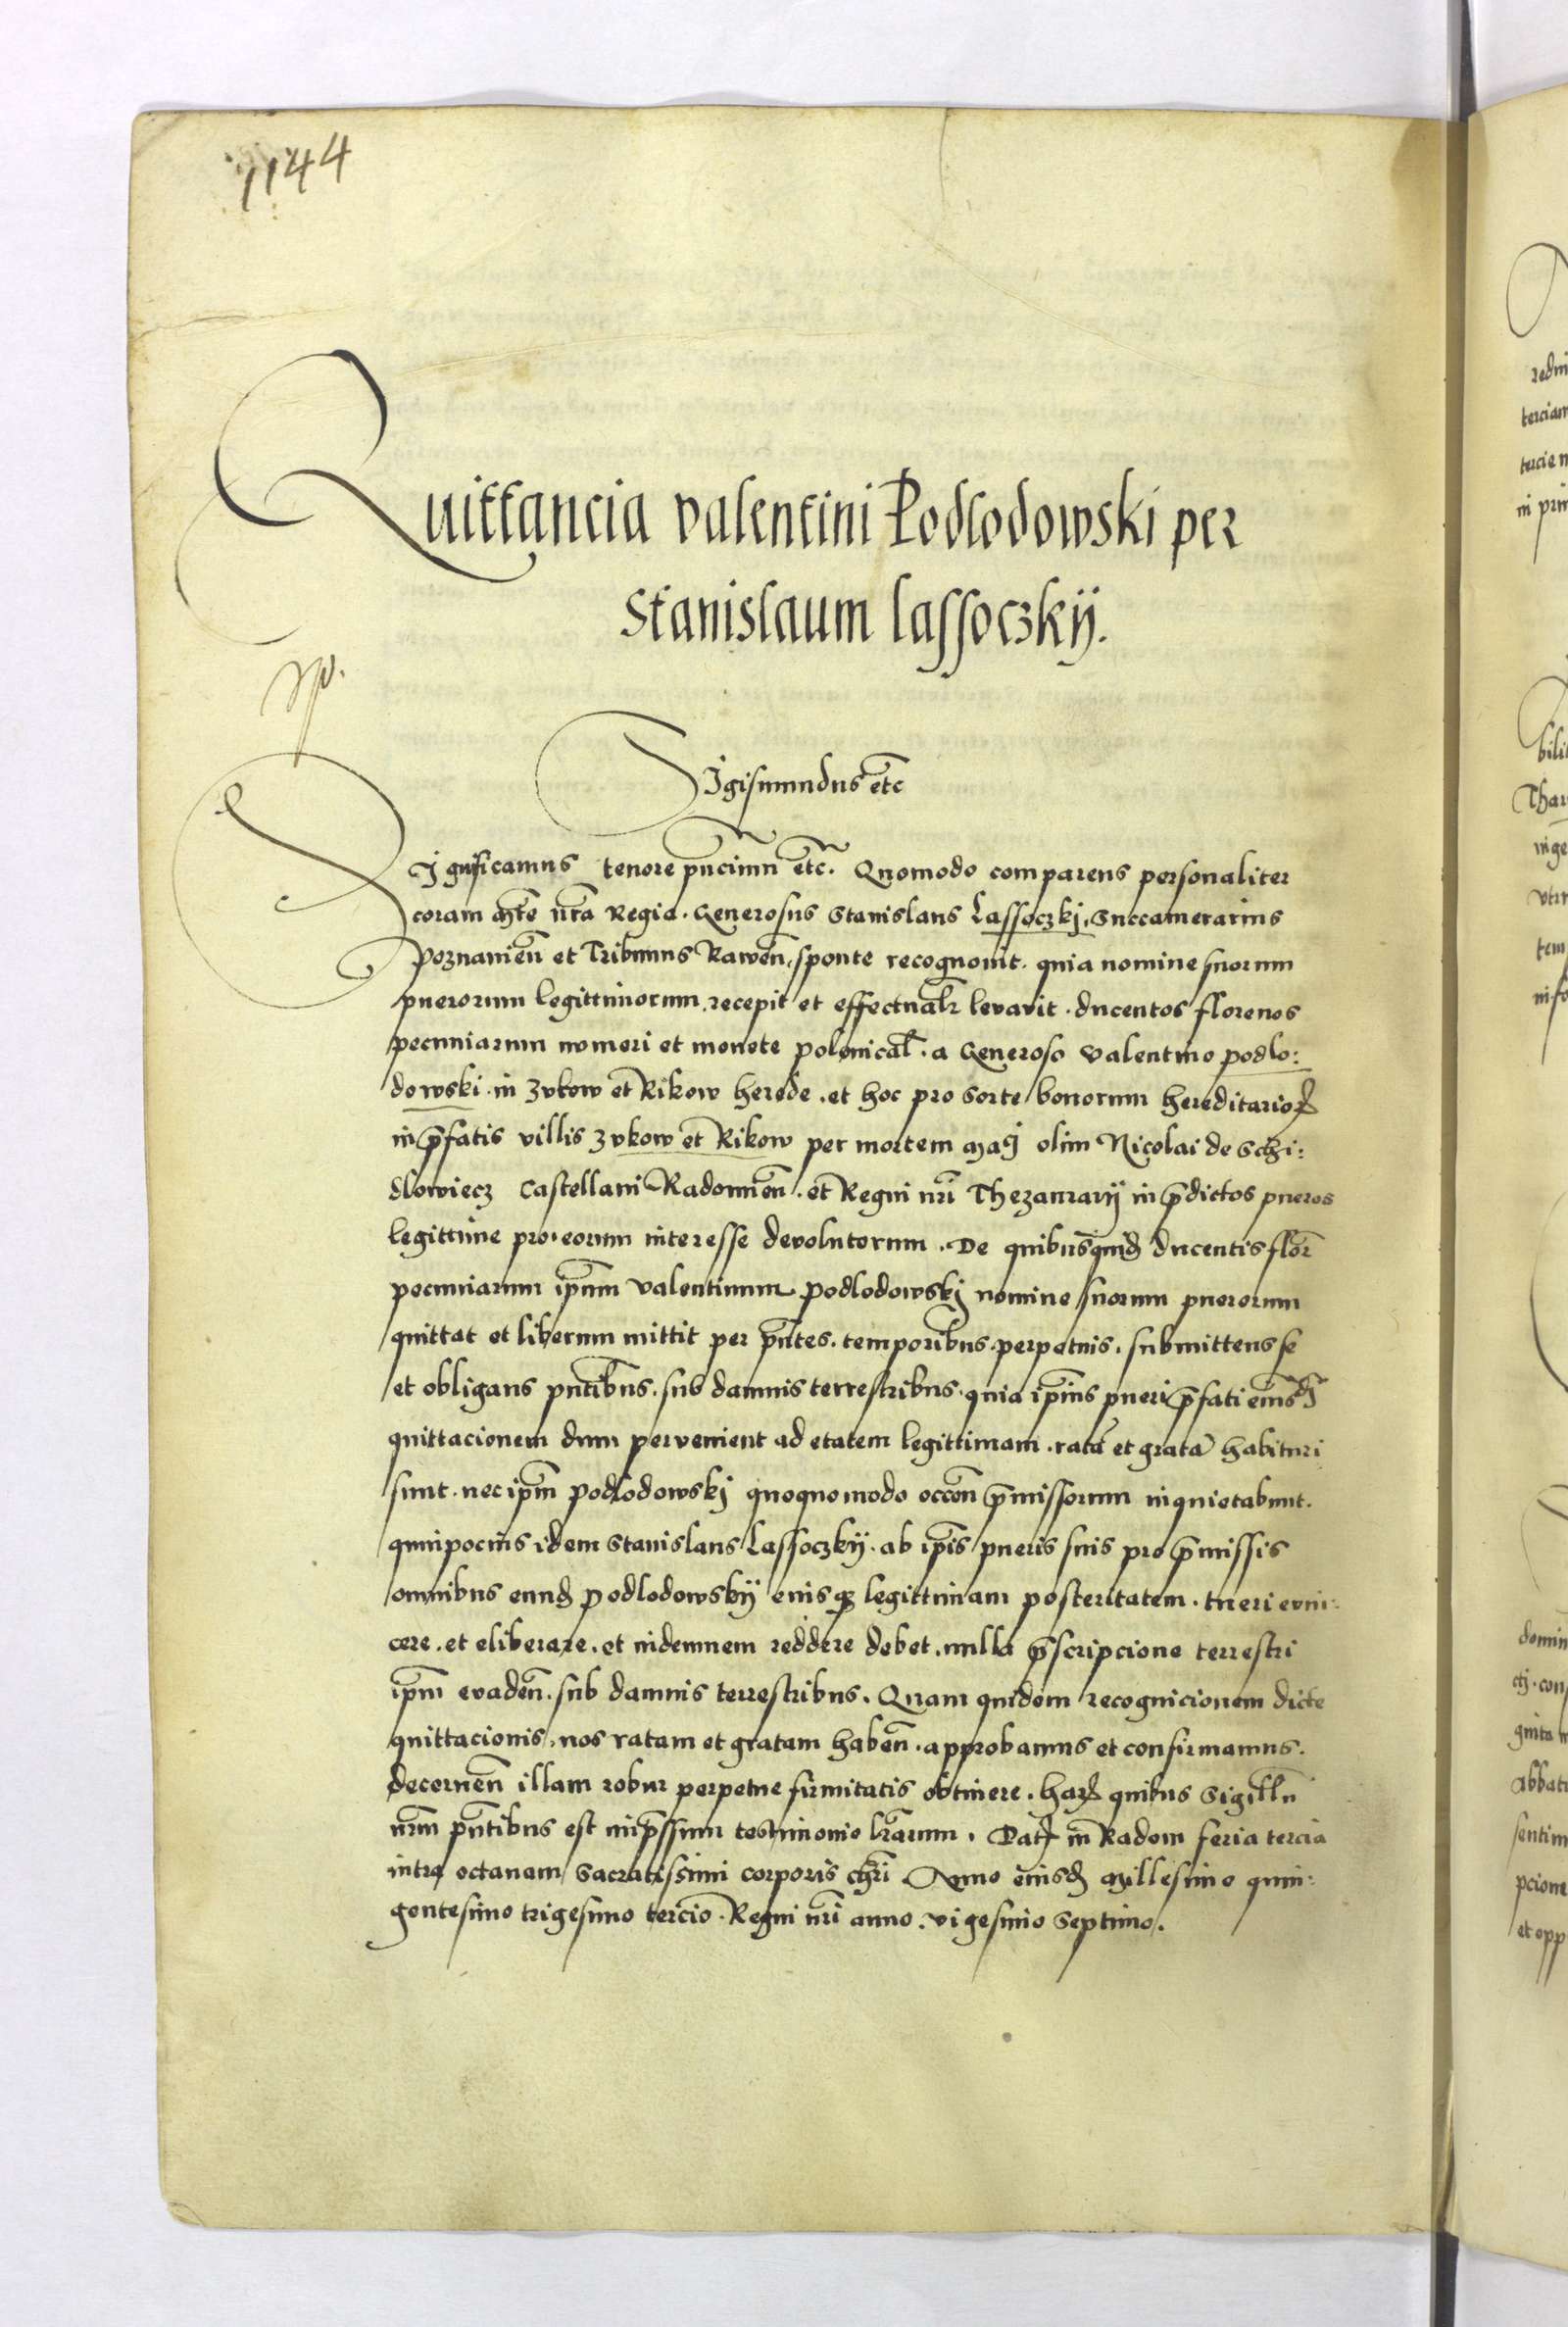 1144
Quittancia valentini Podlodowski per
Stanislaum lassoczkÿ.
Sigismundus etc̄
Significamus tenore pn̄cium etc̄. Quomodo comparens personaliter
coram Mt̄e nr̄a Regia. Generosus Stanislaus Lassoczkj, Succamerarius
Poznanien̄ et Tribunus Rawen̄, sponte recognouit. quia nomine suorum
puerorum legittimorum, recepit et effectualr̄ levavit. ducentos florenos
pecuniarum numeri et monete polonical̄. a Generoso Valentino podlo:
dowski. in Zvkow et Rikow herede. et hoc pro sorte bonorum hereditarioꝝ
in p̄fatis villis Zvkow et Rikow per mortem Magci olim Nicolai de Schi:
dlowiecz Castellani Radomien̄. et Regni nr̄i Thezaurarij in p̄dictos pueros
legittime pro eorum interesse devolutorum. De quibusquid̄ ducentis flor̄
pecuniarum ip̄um Valentinum Podlodowskj nomine suorum puerorum
quittat et liberum mittit per pn̄tes. temporibus. perpetuis. submittens se
et obligans pn̄tibus. sub damnis terrestribus. quia ip̄ius pueri p̄fati eiusd̄
quittacionem dum pervenient ad etatem legittimam. ratā et gratā habituri
sunt. nec ip̄m podlodowskj quoquomodo occōn p̄missorum inquietabunt.
quinpocius idem Stanislaus Lassoczkÿ. ab ip̄is pueris suis pro p̄missis
omnibus eund̄ Podlodowskÿ eiusqꝫ legittimam posteritatem. tueri evin:
cere. et eliberare. et indemnem reddere debet. nulla p̄scripcione terrestri
ip̄m evaden̄. sub damnis terrestribus. Quam quidem recognicionem dicte
quittacionis. nos ratam et gratam haben̄. approbamus et confirmamus.
decernen̄ illam robur perpetue firmitatis obtinere. Harꝝ quibus Sigillū
nr̄m pn̄tibus est imp̄ssum testimonio lr̄arum. Datꝭ in Radom feria tercia
intra octauam Sacratissimi corporis chr̄i Anno eiusd̄ Millesimo quin:
gentesimo trigesimo tercio. Regni nr̄i anno. vigesimo Septimo.